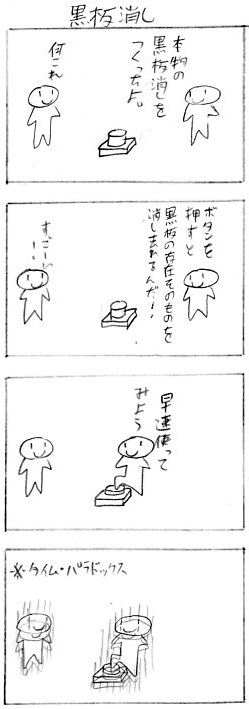 黒板消し
本物の
黒板消しを
つくったよ。
何これ
ボタンを
押すと
黒板の存在そのものを
消し去れるんだ!!
すっごーい!!
早速使って
みよう
※タイム・パラドックス